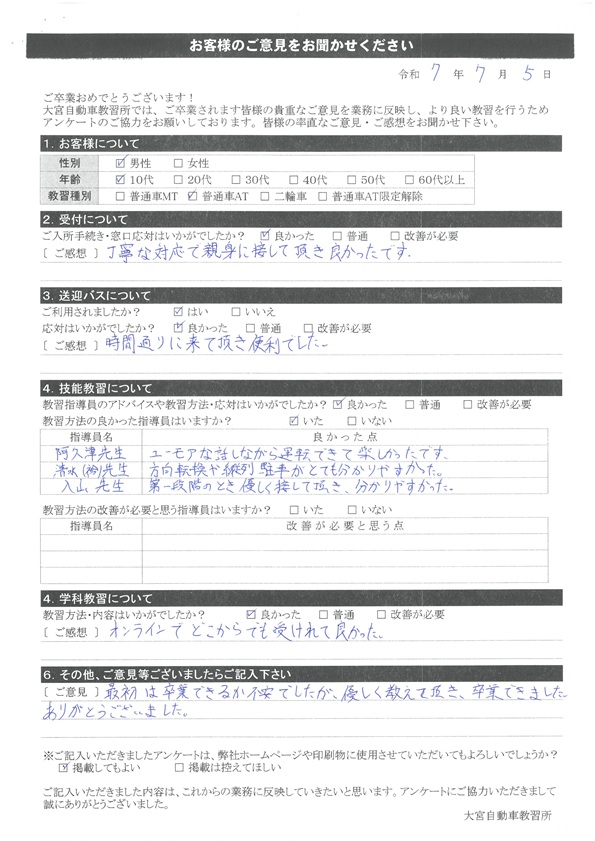 お客様のご意見をお聞かせください
令和 7 年 7 月 5 日
ご卒業おめでとうございます！
大宮自動車教習所では、ご卒業されます皆様の貴重なご意見を業務に反映し、より良い教習を行うため
アンケートのご協力をお願いしております。皆様の率直なご意見・ご感想をお聞かせ下さい。
1. お客様について
性別 ☑男性 □女性
年齢 ☑10代 □20代 □30代 □40代 □50代 □60代以上
教習種別 □普通車MT ☑普通車AT □二輪車 □普通車AT限定解除
2. 受付について
ご入所手続き・窓口応対はいかがでしたか？ ☑良かった □普通 □改善が必要
[ ご感想 ] 丁寧な対応で親身に接して頂き良かったです.
3. 送迎バスについて
ご利用されましたか？ ☑はい □いいえ
応対はいかがでしたか？ ☑良かった □普通 □改善が必要
[ ご感想 ] 時間通りに来て頂き便利でした。
4. 技能教習について
教習指導員のアドバイスや教習方法・応対はいかがでしたか？ ☑良かった □普通 □改善が必要
教習方法の良かった指導員はいますか？ ☑いた □いない
指導員名 良かった点
阿久津先生 ユーモアな話しながら運転できて楽しかったです.
清水 先生 方向転換や縦列駐車がとても分かりやすかった。
入山 先生 第一段階のとき優しく接して頂き、分かりやすかった。
教習方法の改善が必要と思う指導員はいますか？ □いた □いない
指導員名 改善が必要と思う点
4. 学科教習について
教習方法・内容はいかがでしたか？ ☑良かった □普通 □改善が必要
[ ご感想 ] オンラインでどこからでも受けれて良かった。
6. その他、ご意見等ございましたらご記入下さい
[ ご意見 ] 最初は卒業できるか不安でしたが、優しく教えて頂き、卒業できました
ありがとうございました。
※ご記入いただきましたアンケートは、弊社ホームページや印刷物に使用させていただいてもよろしいでしょうか？
☑掲載してもよい □掲載は控えてほしい
ご記入いただきました内容は、これからの業務に反映していきたいと思います。アンケートにご協力いただきまして
誠にありがとうございました。
大宮自動車教習所